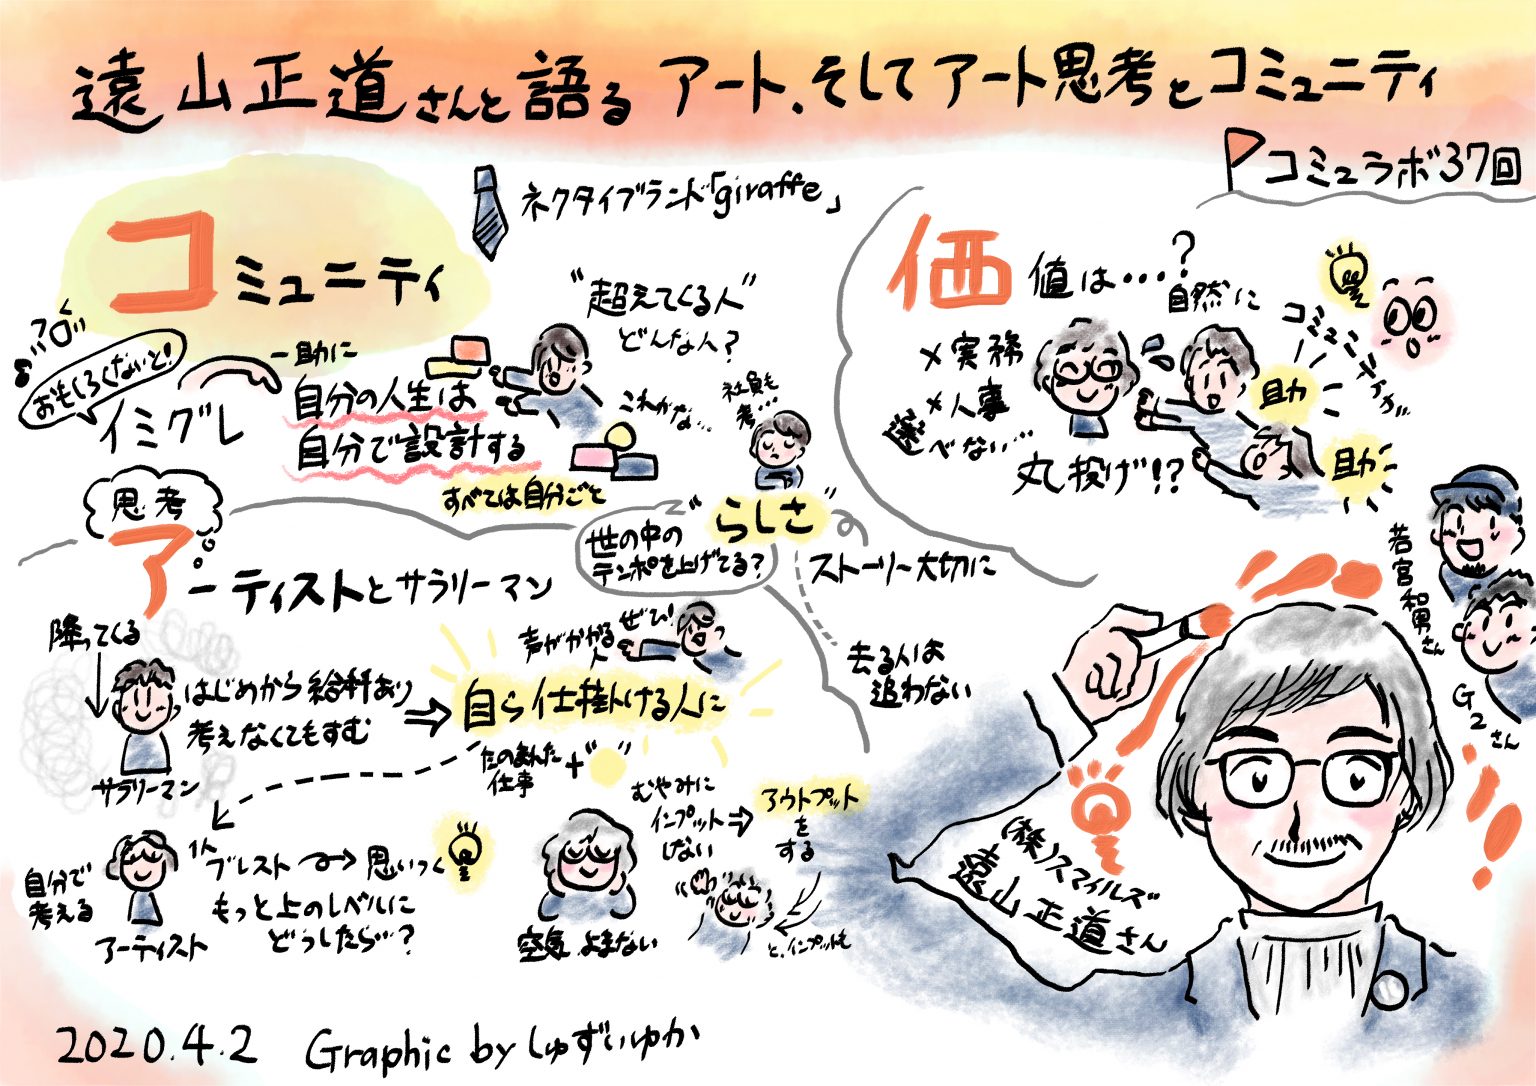 遠山正道さんと語る アート、そしてアート思考とコミュニティ
コミュラボ37回
コミュニティ
ネクタイブランド「giraffe」
おもしろくないと!
イミグレ
一助に
自分の人生は
自分で設計する
すべては自分ごと
"超えてくる人"
どんな人?
これかな…
社員も
考…
"らしさ"
世の中の
テンポを上げてる?
ストーリー大切に
去る人は
追わない
価値は…?
×実務
×人事
選べない…
丸投げ!?
自然に
コミュニティが
助
助
思考
アーティストとサラリーマン
降ってくる
サラリーマン
はじめから給料あり
考えなくてもすむ
⇒
声がかかる
人
ぜひ!
自ら仕掛ける人に
たのまれた
仕事
+" "
自分で
考える
アーティスト
1人
ブレスト → 思いつく
もっと上のレベルに
どうしたら…?
空気よまない
むやみに
インプット
しない
⇒
アウトプット
を
する
と、インプットも
若宮和男さん
G2さん
(株)スマイルズ
遠山正道さん
2020.4.2 Graphic by しゅずいゆか